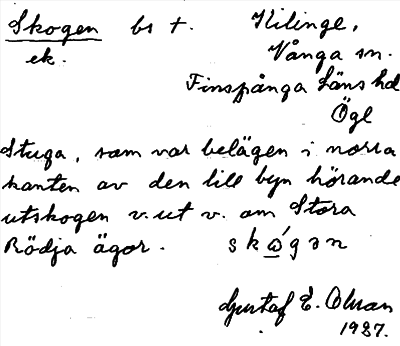 Skogen bs t. Kilinge,
ek. Vånga sn.
Finspånga läns hd
Ögl
Stuga, som var belägen i norra
kanten av den till byn hörande
utskogen v. ut v. om Stora
Rödja ägor. skώ̲gən
Gustaf E. Olson
1937.